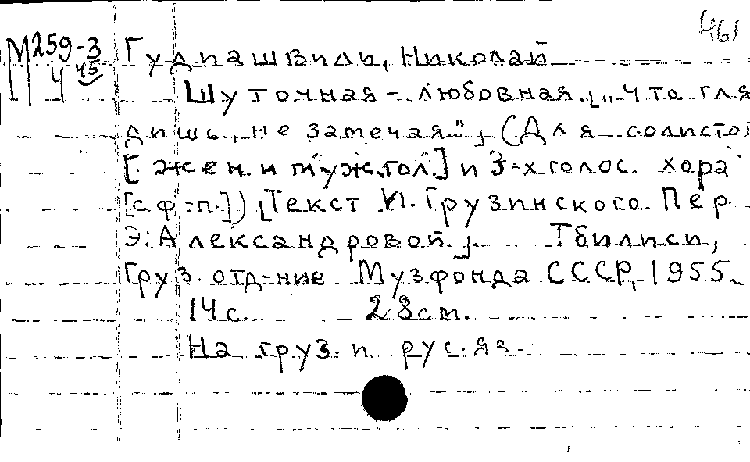 461
М259-3 Гудиашвили, Николай
4 45
Шуточная-любовная. „Что гля
дишь, не замечая". (Для солистов
[жен. и муж. гол.] и 3-х голос. хора
[с ф-п.]) Текст И. Грузинского. Пер
Э. Александровой. Тбилиси,
Груз. отд-ние Музфонда СССР, 1955.
14 с. 28 cm.
На груз. и рус. яз.